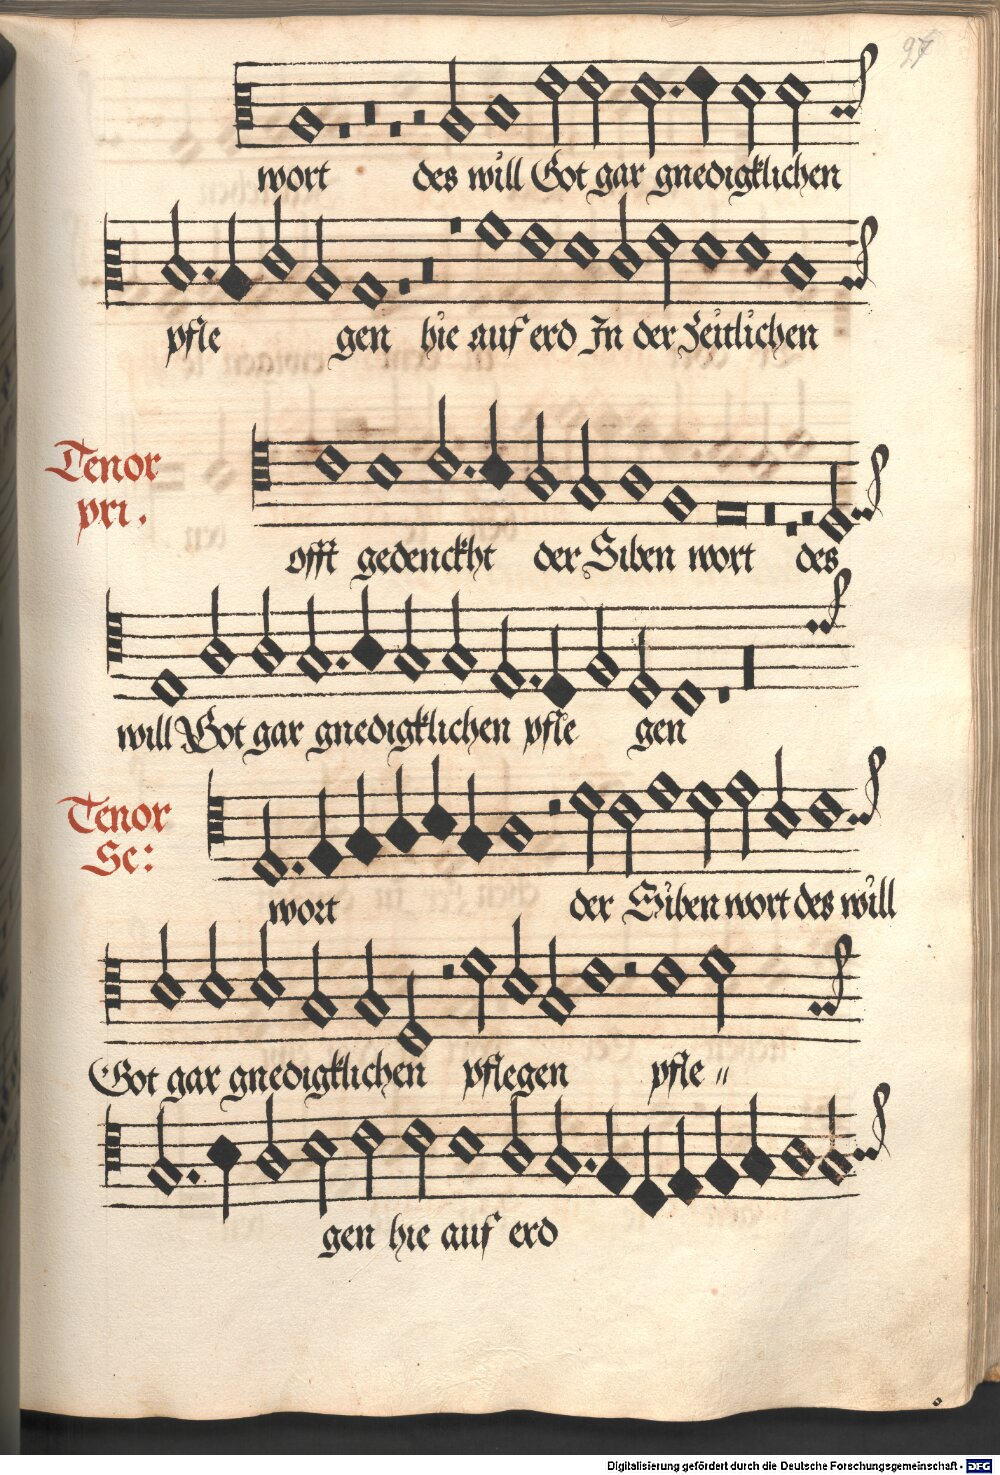 97
wort des will Got gar gnedigklichen
pfle gen hie auf erd In der Zeitlichen
Tenor
pri.
offt gedenckht der Siben wort des
will Got gar gnedigklichen pfle gen
Tenor
Se:
wort der Siben wort des will
Got gar gnedigklichen pflegen pfle〃
gen hie auf erd
Digitalisierung gefördert durch die Deutsche Forschungsgemeinschaft - DFG